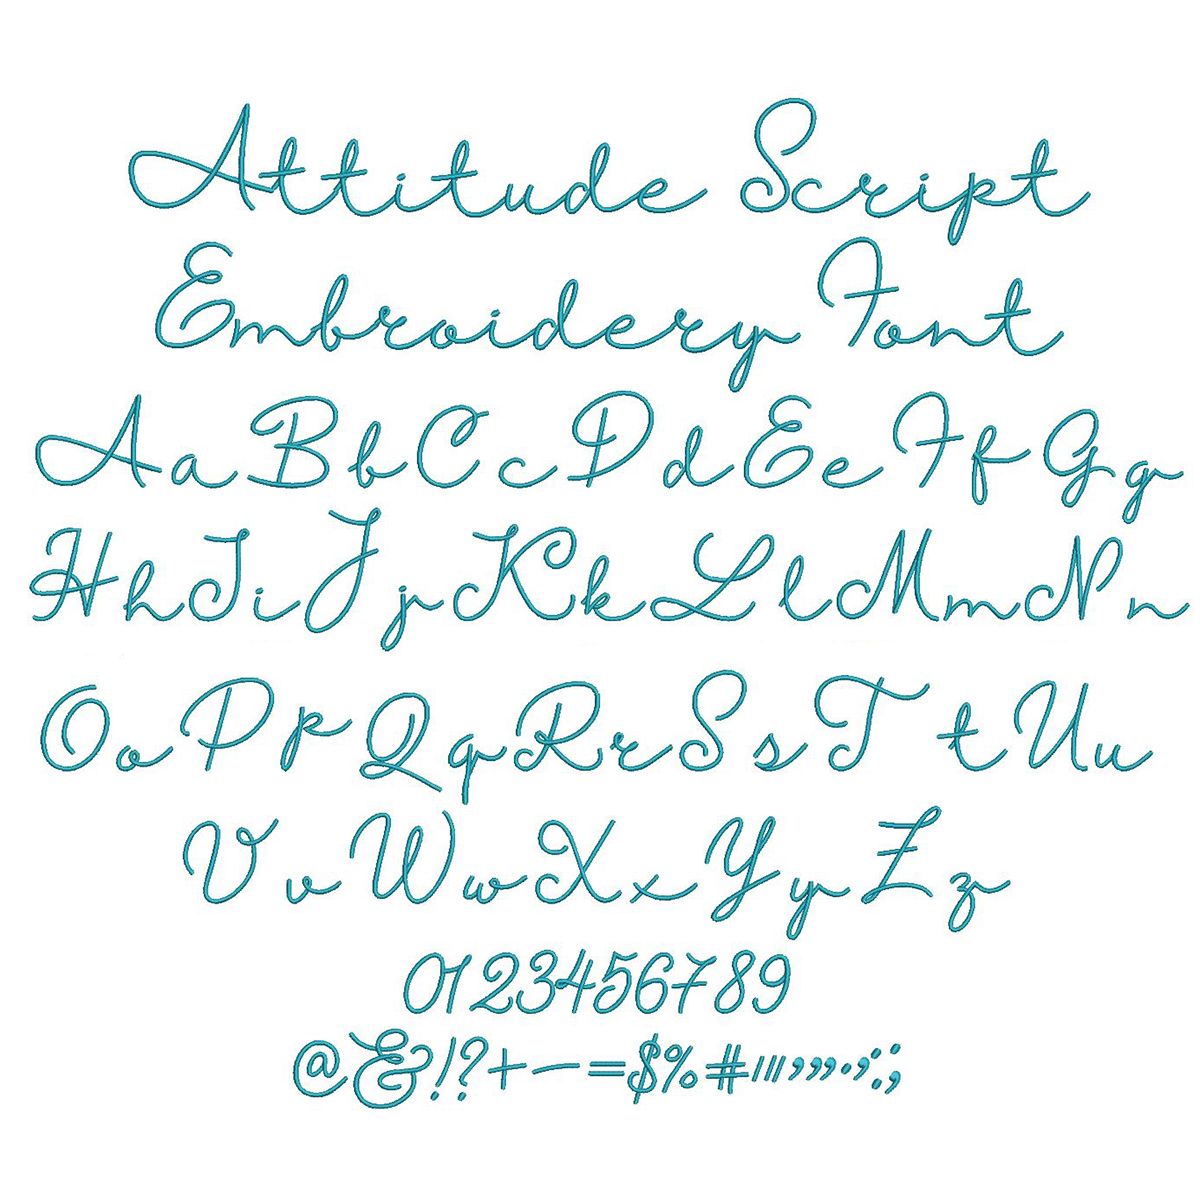 Attitude Script
Embroidery Font
Aa Bb Cc Dd Ee Ff Gg
Hh Ii Jj Kk Ll Mm Nn
Oo Pp Qq Rr Ss Tt Uu
Vv Ww Xx Yy Zz
0123456789
@&!?+-=$%#